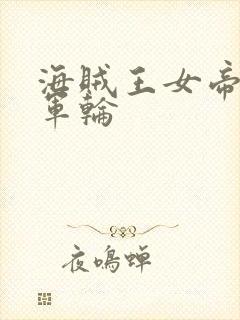 海賊王女帝
軍輪
夜鳴蟬